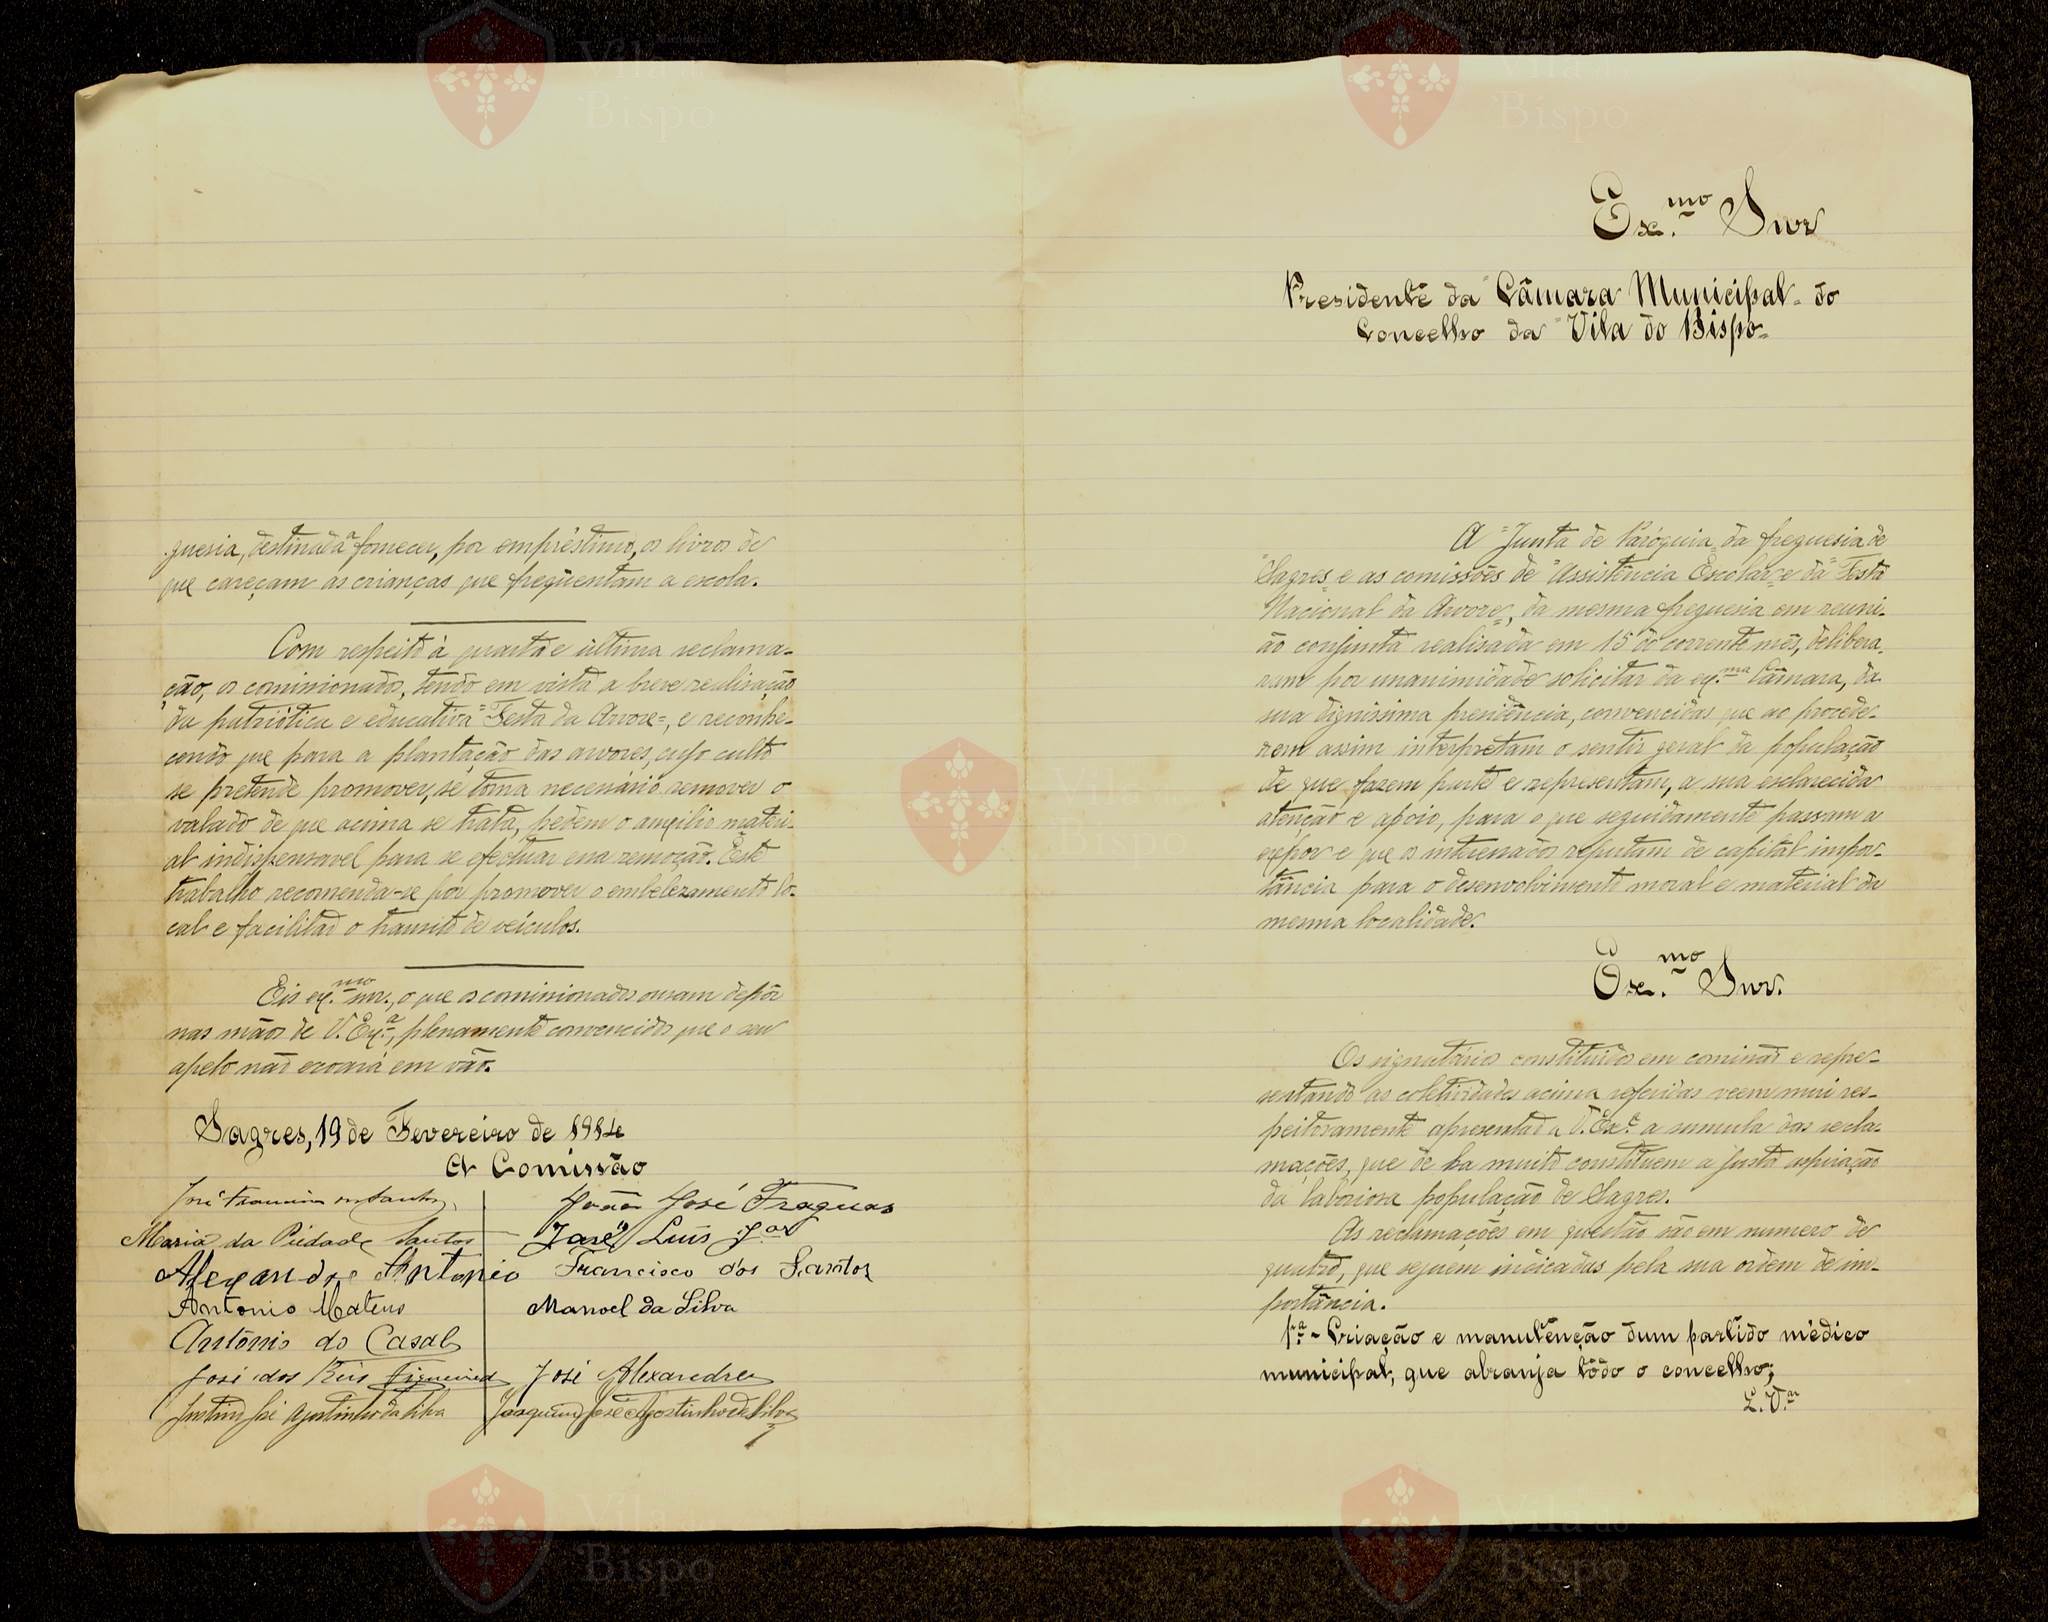 Ex.mo Snr
Presidente da "Câmara Municipal" do
Concelho da "Vila do Bispo"
A "Junta de Paróquia" da freguesia de
"Sagres" e as comissões de "Assistência Escolar" e da "Festa
Nacional da Arvore", da mesma freguesia em reuni-
ão conjunta realisada em 15 do corrente mês, delibera-
ram por unanimidade solicitar da ex.ma Câmara, da
sua digníssima presidência, convencidos que ao procede-
rem assim interpretam o sentir geral da população
de que fazem parte e representam, a sua esclarecida
atenção e apoio, para o que seguidamente passam a
expôr e que os interessados reputam de capital impor-
tância para o desenvolvimento moral e material da
mesma localidade.
Ex.mo Snr.
Os signatários constituidos em comissão e repre-
sentando as colétividades acima referidas veem mui res-
peitosamente apresentar a V. Ex.ª a sumula das recla-
mações, que de ha muito constituem a justa aspiração
da laboriosa população de Sagres.
As reclamações em questão são em numero de
quatro, que seguem indicadas pela sua ordem de im-
portância.
1.ª - Criação e manutenção dum partido médico
municipal, que abranja tôdo o concelho;
guesia, destinada a fornecer, por empréstimo, os livros de
que careçam as crianças que freqüentam a escola.
Com respeito á quarta e ultima reclama-
ção, os comissionados, tendo em vista a breve realisação
da patriótica e educativa "Festa da Arvore", e reconhe-
cendo que para a plantação das arvores, cujo culto
se pretende promover, se torna necessário remover o
valado de que acima se trata, pedem o auxilio materi-
al indispensavel para se efectuar essa remoção. Este
trabalho recomenda-se por promover o embelezamento lo-
cal e facilitar o transito de veículos.
Eis ex.mo snr., o que os comissionados ousam depôr
nas mãos de V. Ex.ª, plenamente convencidos que o seu
apelo não ecoará em vão.
Sagres, 19 de Fevereiro de 1914
A Comissão
José Francisco dos Santos
João José Fraguas
Maria da Piedade Santos
José Luís
Alexandre Antonio
Francisco dos Santos
Antonio Mateus
Manoel da Silva
António do Casal
José dos Reis Figueired
José Alexandre
José Agostinho da Silva
Joaquim José Agostinho da Silva
Vila do
Bispo